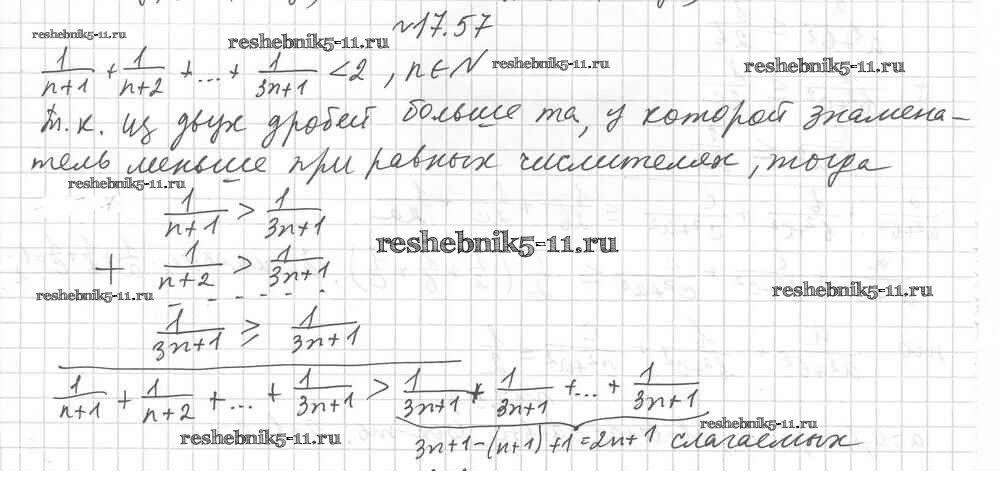 №17.57
reshebnik5-11.ru
reshebnik5-11.ru
1/(n+1) + 1/(n+2) + ... + 1/(3n+1) < 2, n∈N
reshebnik5-11.ru
reshebnik5-11.ru
Т.к. из двух дробей больше та, у которой знамена-
тель меньше при равных числителях, тогда
reshebnik5-11.ru
1/(n+1) > 1/(3n+1)
reshebnik5-11.ru
+ 1/(n+2) > 1/(3n+1)
reshebnik5-11.ru
reshebnik5-11.ru
- - - - - - -
1/(3n+1) ≥ 1/(3n+1)
1/(n+1) + 1/(n+2) + ... + 1/(3n+1) > 1/(3n+1) + 1/(3n+1) + ... + 1/(3n+1)
reshebnik5-11.ru
reshebnik5-11.ru
3n+1-(n+1)+1=2n+1 слагаемых